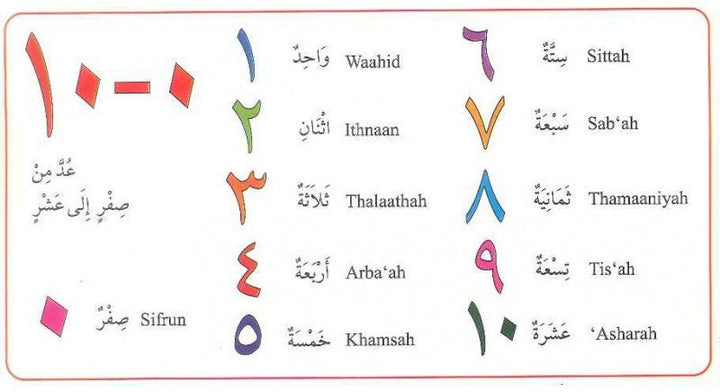 ١٠-٠
عُدَّ مِنْ
صِفْرٍ إِلَى عَشْرٍ
٠ صِفْرٌ Sifrun
١ وَاحِدٌ Waahid
٢ اثْنَانِ Ithnaan
٣ ثَلَاثَةٌ Thalaathah
٤ أَرْبَعَةٌ Arba‘ah
٥ خَمْسَةٌ Khamsah
٦ سِتَّةٌ Sittah
٧ سَبْعَةٌ Sab‘ah
٨ ثَمَانِيَةٌ Thamaaniyah
٩ تِسْعَةٌ Tis‘ah
١٠ عَشَرَةٌ ‘Asharah